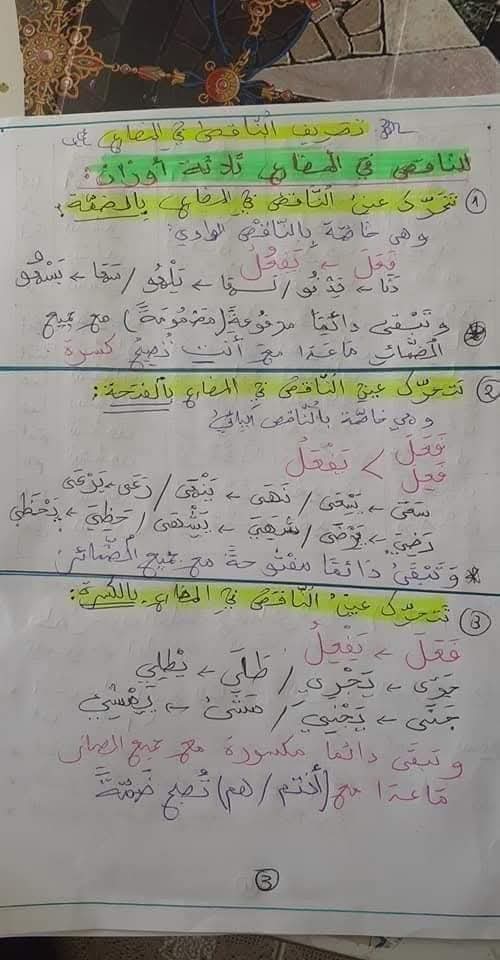 تصريف النّاقص في المضارع
النّاقص في المضارع ثلاثة أوزان:
① تتحرّك عين النّاقص في المضارع بالضمّة:
وهي خاصّة بالنّاقص الواوي:
فَعَلَ ← يَفْعُلُ
دَنَا ← يَدْنُو / سَهَا ← يَلْهُو / سَهَا ← يَسْهُو
وتبقى دائما مرفوعة (مضمومة) مع جميع
الضّمائر ماعدا مع أنتِ تُصبح كسرة
② تتحرّك عين النّاقص في المضارع بالفتحة:
وهي خاصّة بالنّاقص اليائي
فَعَلَ
فَعِلَ > يَفْعَلُ
سَعَى ← يَسْعَى / نَهَى ← يَنْهَى / رَعَى ← يَرْعَى
رَضِيَ ← يَرْضَى / شَهِيَ ← يَشْهَى / حَظِيَ ← يَحْظَى
* وَتَبْقَى دَائمًا مفتوحةً مع جميع الضّمائر
③ تتحرّك عين النّاقص في المضارع بالكسرة:
فَعَلَ ← يَفْعِلُ
جَرَى ← يَجْرِي / طَلَى ← يَطْلِي
جَنَى ← يَجْنِي / مَشَى ← يَمْشِي
وتبقى دائما مكسورة مع جميع الضمائر
مَاعدا مع (أنتم / هم) تُصبح ضَمّةً
③